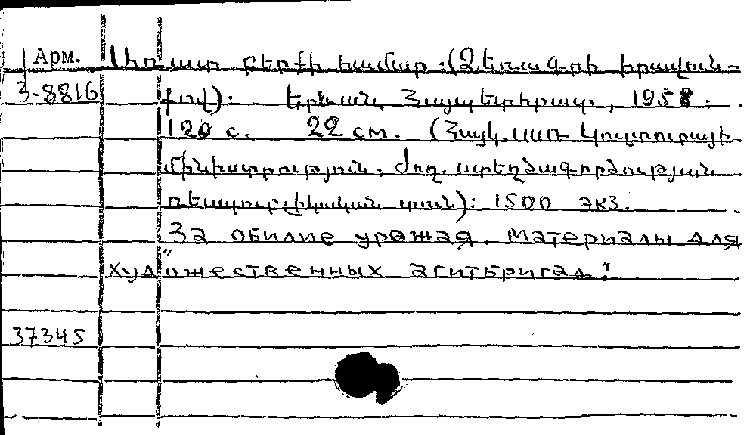 Арм. Առատ բերքի համար. (Ձեռագրի իրավուն-
3-8816 քով): Երևան, Հայպետհրատ, 1958.
120 с. 22 см. (Հայկ. ՍՍՌ կուլտուրայի
մինիստրություն. Ժող. ստեղծագործության
ռեսպուբլիկական տուն): 1500 экз.
За обилие урожая. Материалы для
художественных агитбригад."
37345